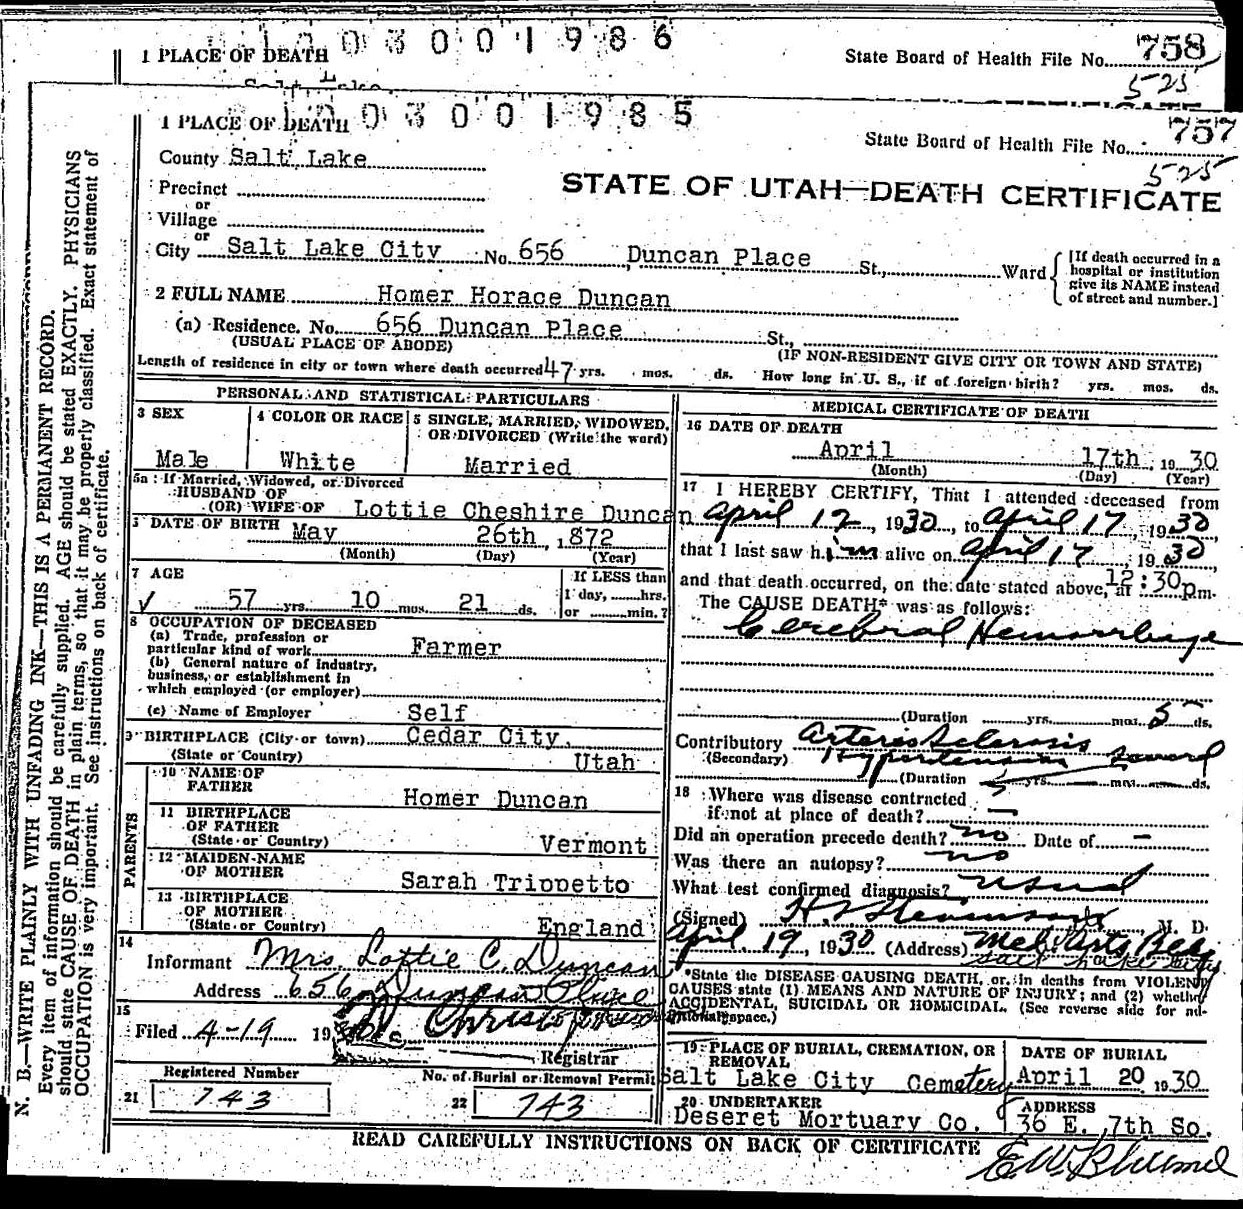 1003001986
1 PLACE OF DEATH
State Board of Health File No. 758
525
1003001985
1 PLACE OF DEATH
State Board of Health File No. 757
525
County Salt Lake
STATE OF UTAH—DEATH CERTIFICATE
Precinct
or
Village
or
City Salt Lake City No 656 Duncan Place St., Ward
[If death occurred in a
hospital or institution
give its NAME instead
of street and number.]
2 FULL NAME Homer Horace Duncan
(a) Residence. No. 656 Duncan Place St.,
(USUAL PLACE OF ABODE) (IF NON-RESIDENT GIVE CITY OR TOWN AND STATE)
Length of residence in city or town where death occurred 47 yrs. mos. ds. How long in U. S., if of foreign birth? yrs. mos. ds.
PERSONAL AND STATISTICAL PARTICULARS
3 SEX
Male
4 COLOR OR RACE
White
5 SINGLE, MARRIED, WIDOWED,
OR DIVORCED (Write the word)
Married
5a If Married, Widowed, or Divorced
HUSBAND OF
(OR) WIFE OF Lottie Cheshire Duncan
DATE OF BIRTH May 26th, 1872
(Month) (Day) (Year)
7 AGE
57 yrs. 10 mos. 21 ds.
If LESS than
1 day, hrs.
or min.?
8 OCCUPATION OF DECEASED
(a) Trade, profession or
particular kind of work Farmer
(b) General nature of industry,
business, or establishment in
which employed (or employer)
(c) Name of Employer Self
9 BIRTHPLACE (City or town) Cedar City,
(State or Country) Utah
PARENTS
10 NAME OF
FATHER Homer Duncan
11 BIRTHPLACE
OF FATHER
(State or Country) Vermont
12 MAIDEN NAME
OF MOTHER Sarah Trippetto
13 BIRTHPLACE
OF MOTHER
(State or Country) England
14
Informant Mrs. Lottie C. Duncan
Address 656 Duncan Place
15
Filed 4-19 19
Registrar
Registered Number
21 743
No. of Burial or Removal Permit
22 743
MEDICAL CERTIFICATE OF DEATH
16 DATE OF DEATH
April 17th, 1930
(Month) (Day) (Year)
17 I HEREBY CERTIFY, That I attended deceased from
April 12, 1930, to April 17, 1930
that I last saw him alive on April 17, 1930,
and that death occurred, on the date stated above, at 12:30pm.
The CAUSE DEATH* was as follows:
Cerebral Hemorrhage
(Duration yrs. mos. 5 ds.
Contributory Arteriosclerosis
(Secondary) Hypertension several
(Duration yrs. mos. ds.
18 Where was disease contracted
if not at place of death? —
Did an operation precede death? no Date of —
Was there an autopsy? no
What test confirmed diagnosis? usual
(Signed) M. D.
April 19, 1930 (Address) Med Arts Bldg
Salt Lake City
*State the DISEASE CAUSING DEATH, or in deaths from VIOLENT
CAUSES state (1) MEANS AND NATURE OF INJURY; and (2) whether
ACCIDENTAL, SUICIDAL OR HOMICIDAL. (See reverse side for ad-
ditional space.)
19 PLACE OF BURIAL, CREMATION, OR
REMOVAL
Salt Lake City Cemetery
DATE OF BURIAL
April 20 1930
20 UNDERTAKER
Deseret Mortuary Co.
ADDRESS
36 E. 7th So.
READ CAREFULLY INSTRUCTIONS ON BACK OF CERTIFICATE
N. B.—WRITE PLAINLY WITH UNFADING INK—THIS IS A PERMANENT RECORD.
Every item of information should be carefully supplied. AGE should be stated EXACTLY. PHYSICIANS
should state CAUSE OF DEATH in plain terms, so that it may be properly classified. Exact statement of
OCCUPATION is very important. See instructions on back of certificate.